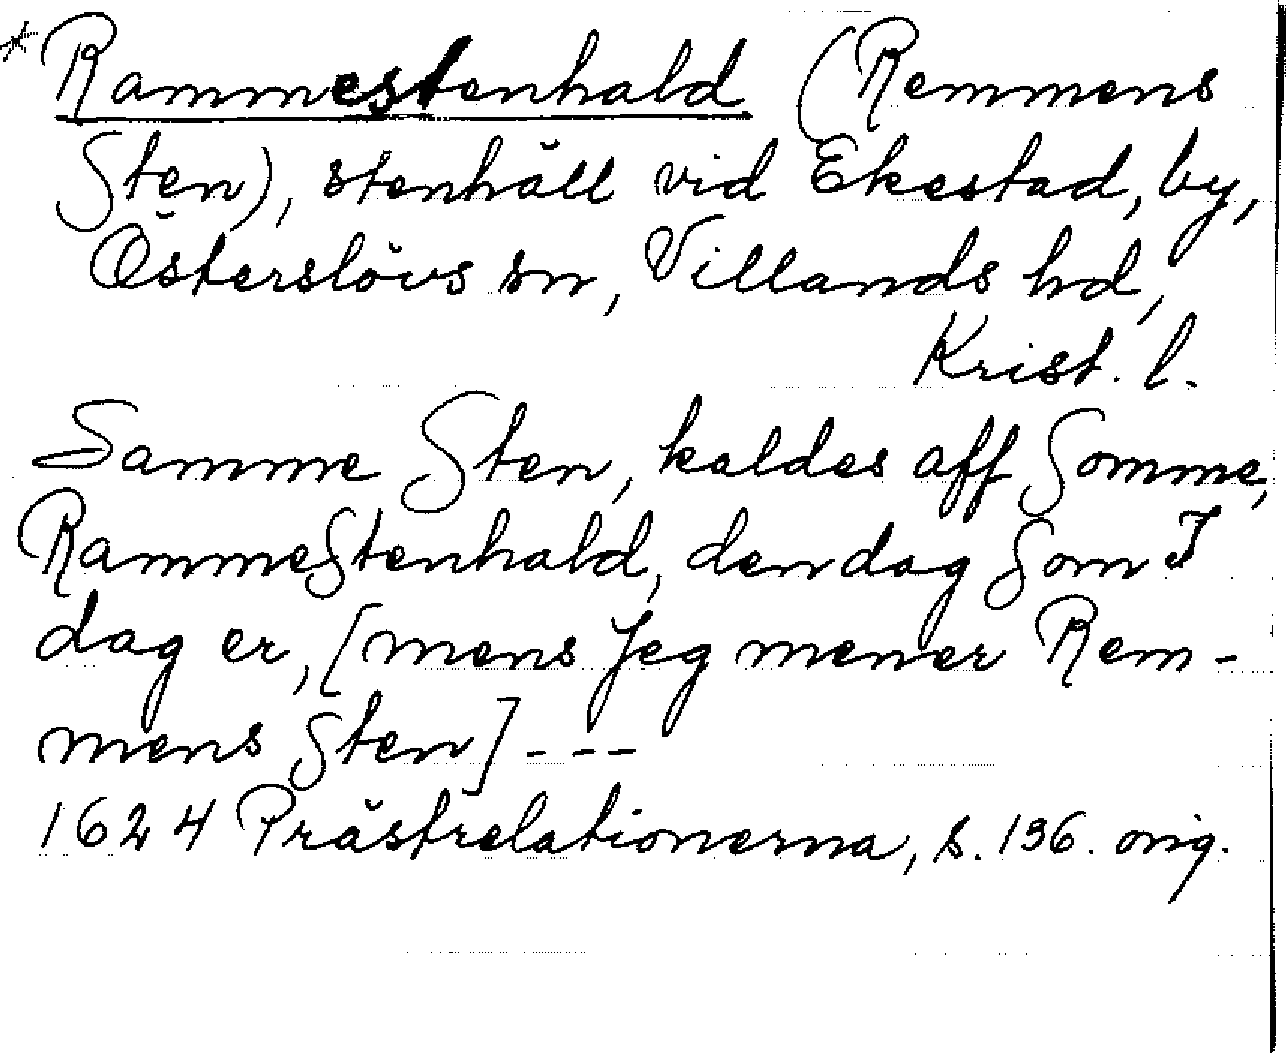 * Rammestenhald (Remmens
Sten), stenhäll vid Ekestad, by,
Österslövs sn, Villands hd,
Krist. l.
Samme Sten, kaldes aff Somme,
RammeStenhald, den dag Som I
dag er, [mens Jeg mener Rem-
mens Sten] - - -
1624 Prästrelationerna, s. 136. orig.